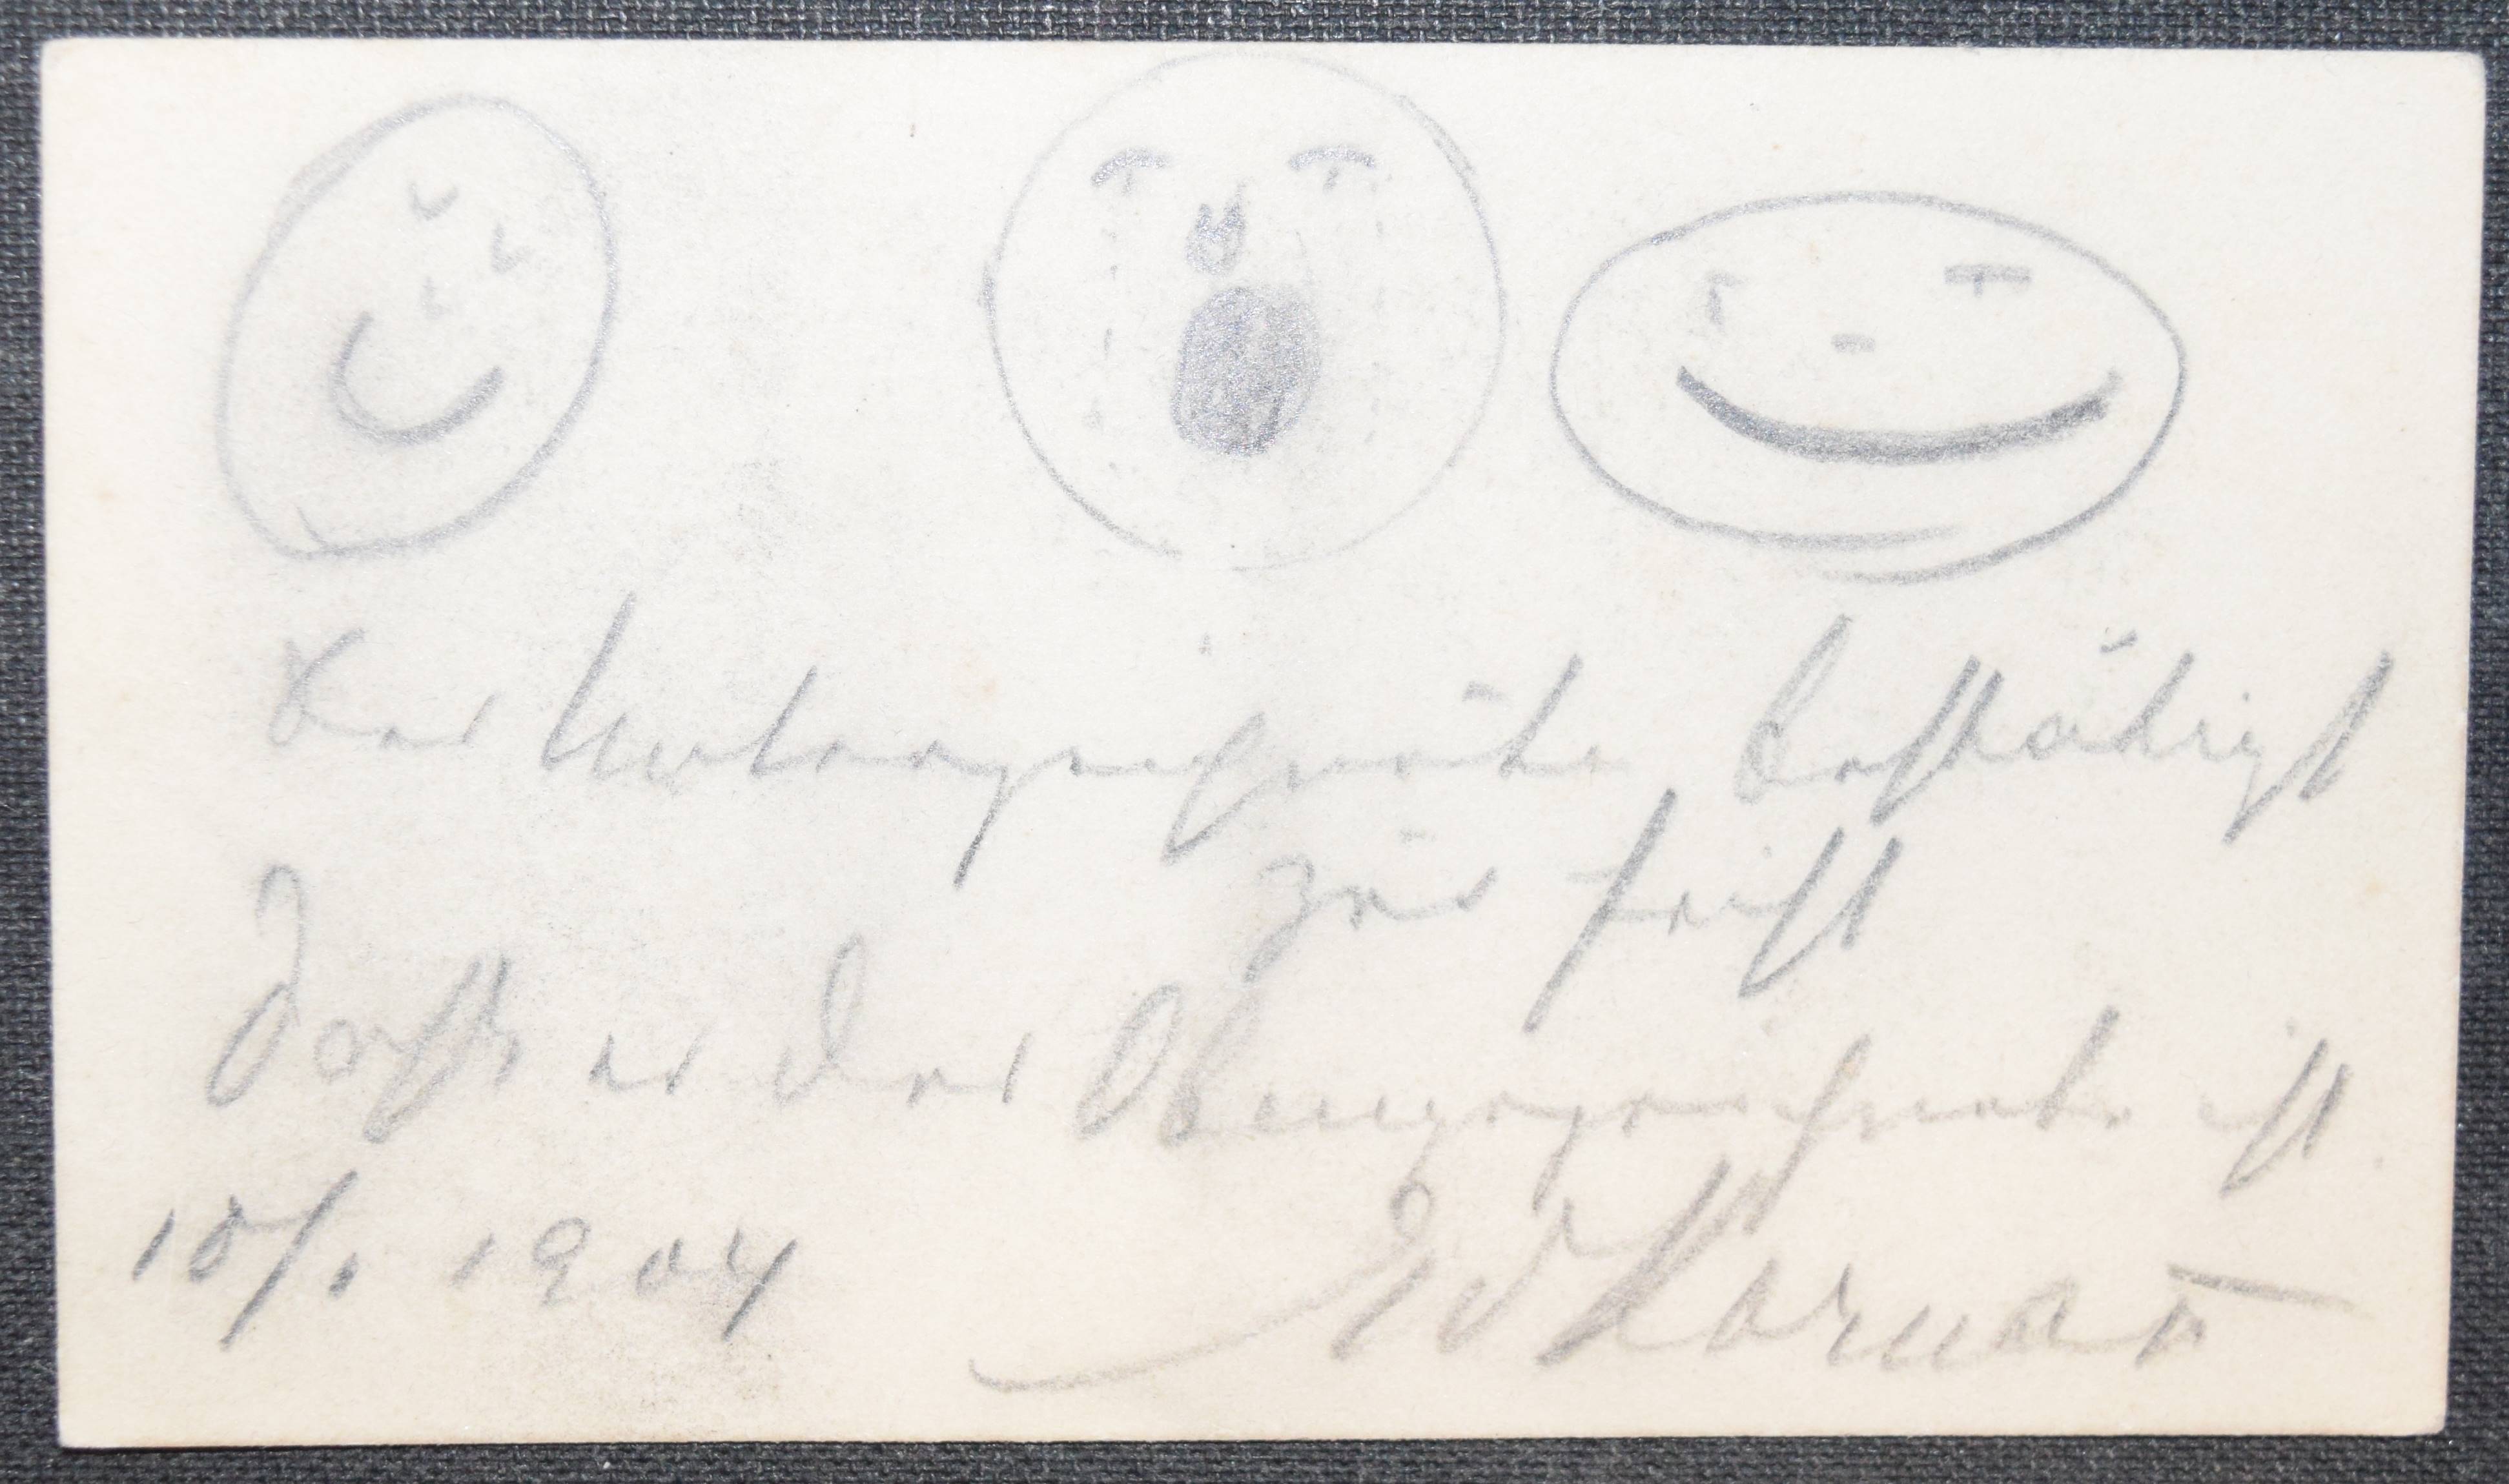 Der Unterzeichnete bestätigt
zur
daß er der Obengezeichnete ist.
1904